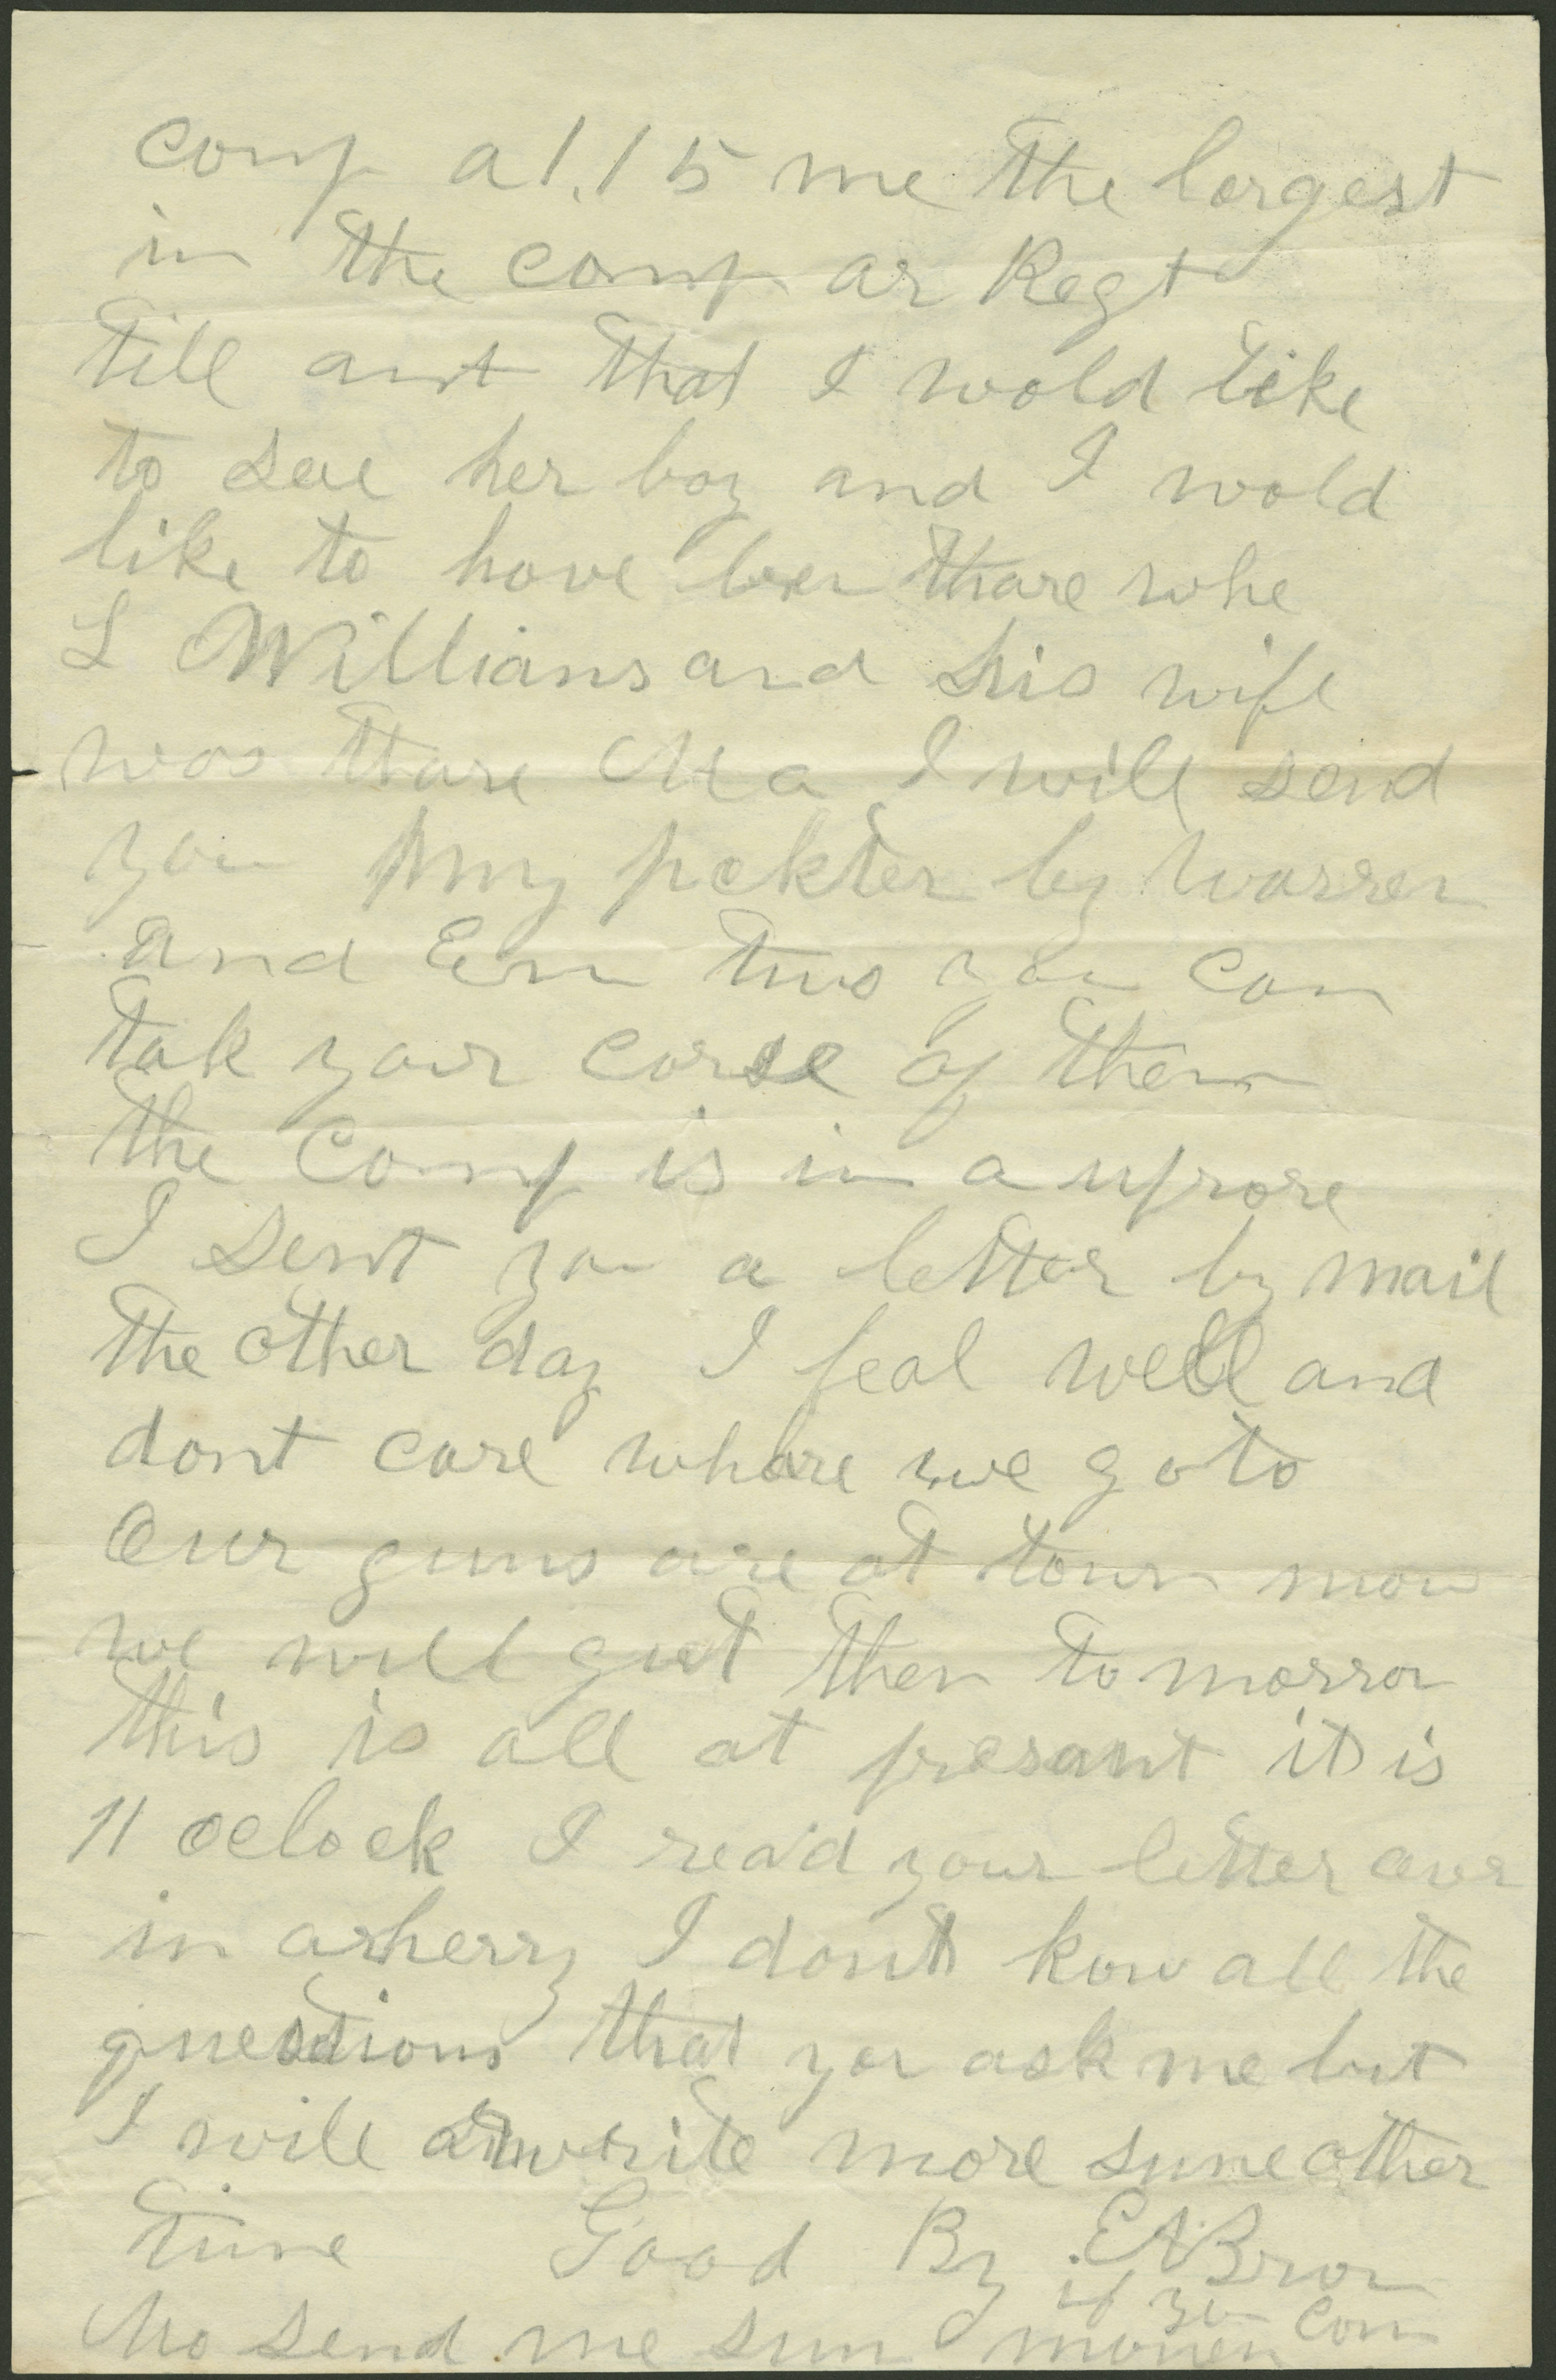 comp al.15 me the largest
in the comp ar Regt
till ant that I wold like
to see her boy and I wold
like to have ben thare whe
L Willians and his wife
was thare Ma I will send
you my pickter by Warren
and Ern two you can
tak your corse of them
the Comp is in a uprore
I sent you a letter by mail
the other day I feal well and
dont care whare we go to
Our guns are at town now
we will get them to morrow
this is all at presant it is
11 oclock I read your letter over
in a herry I dont kow all the
questions that you ask me but
I will write more sune other
time Good By E A Brown
if you can
Ma send me sum money